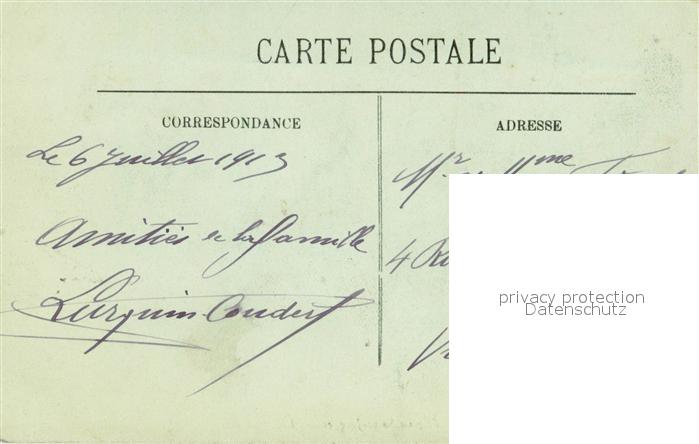 CARTE POSTALE
CORRESPONDANCE
ADRESSE
Le 6 Juillet 1913
Amitiés de la famille
Lurquin Coudert
Mr Mme
4
privacy protection
Datenschutz